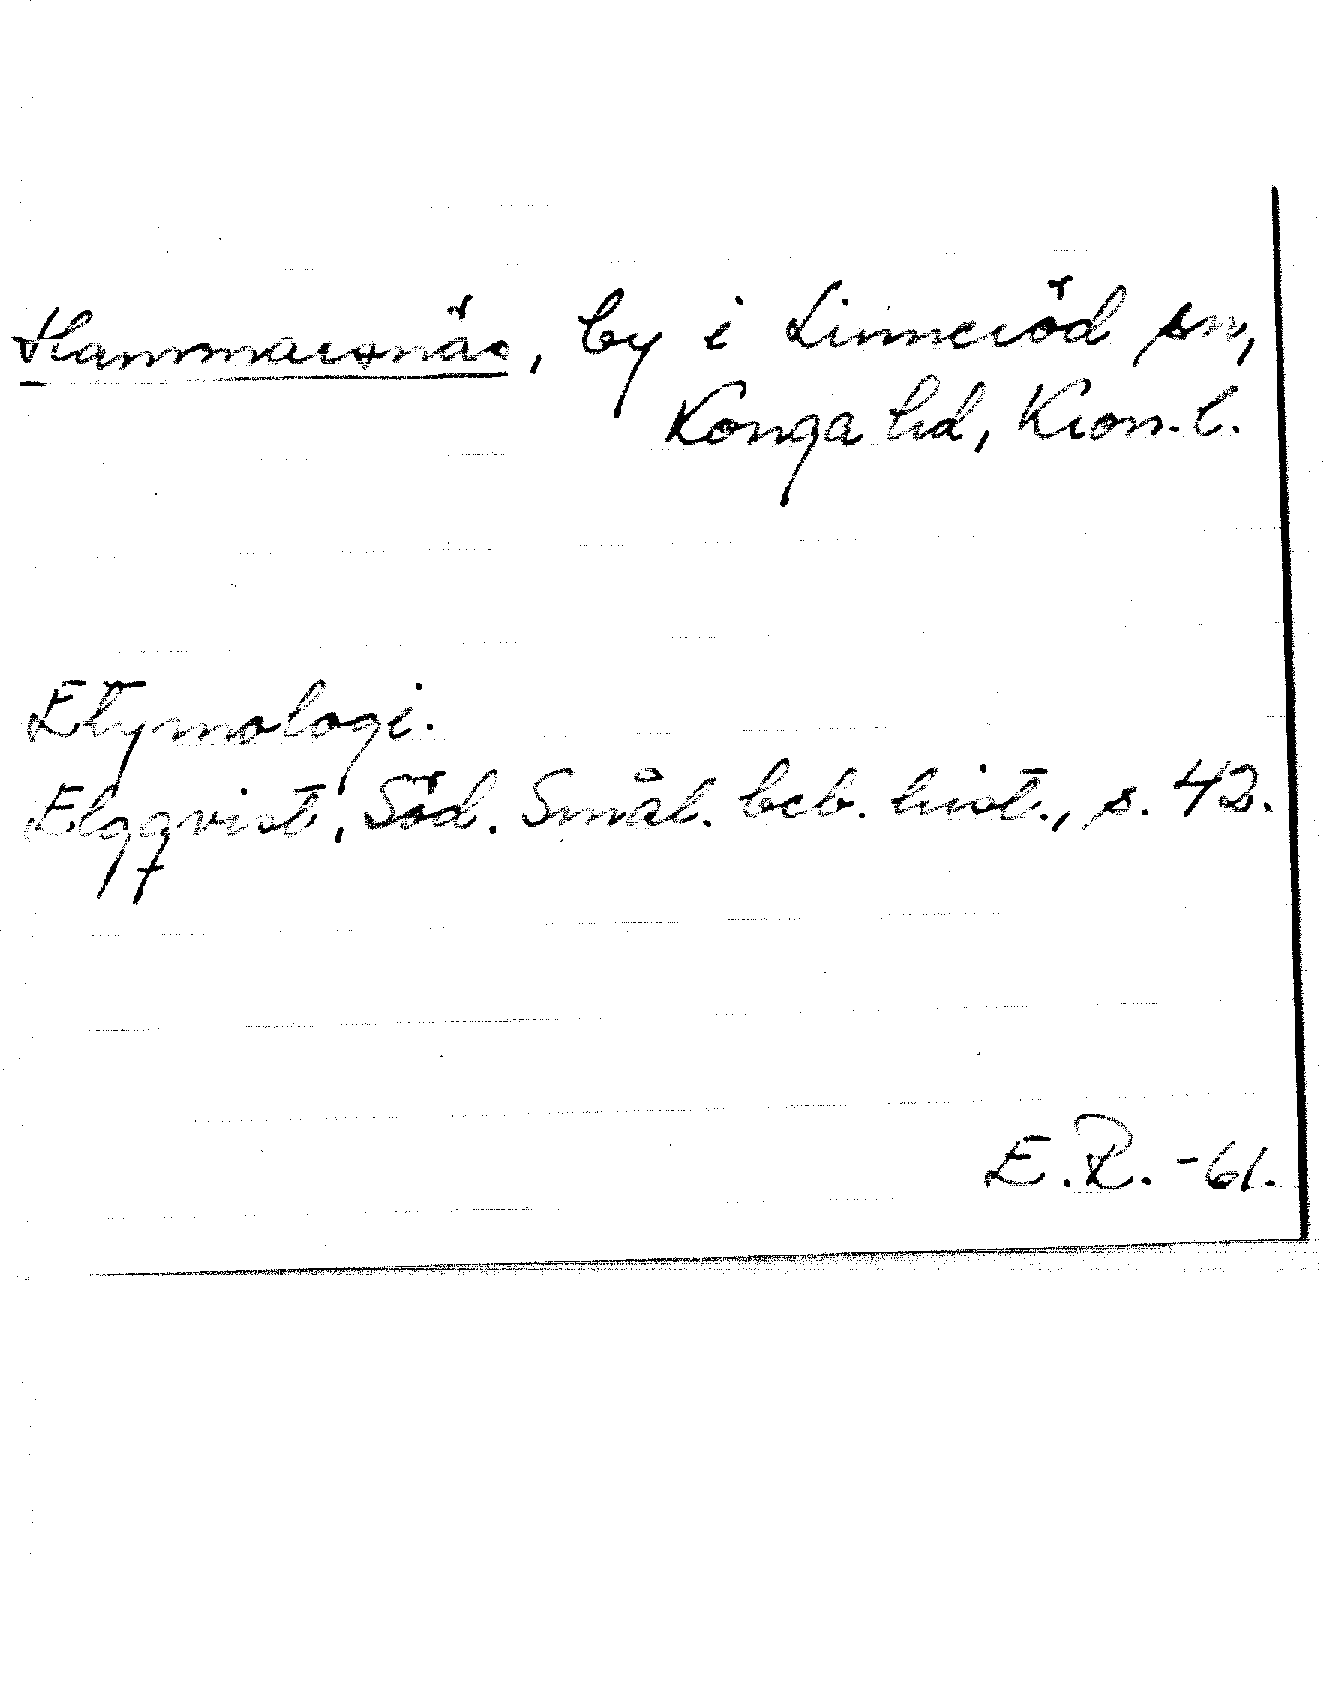 Hammarsnäs, by i Linneröd sn,
Konga hd, Kron. l.
Etymologi.
Elgqvist, Söd. Smål. beb. hist., s. 42.
E.R. -61.